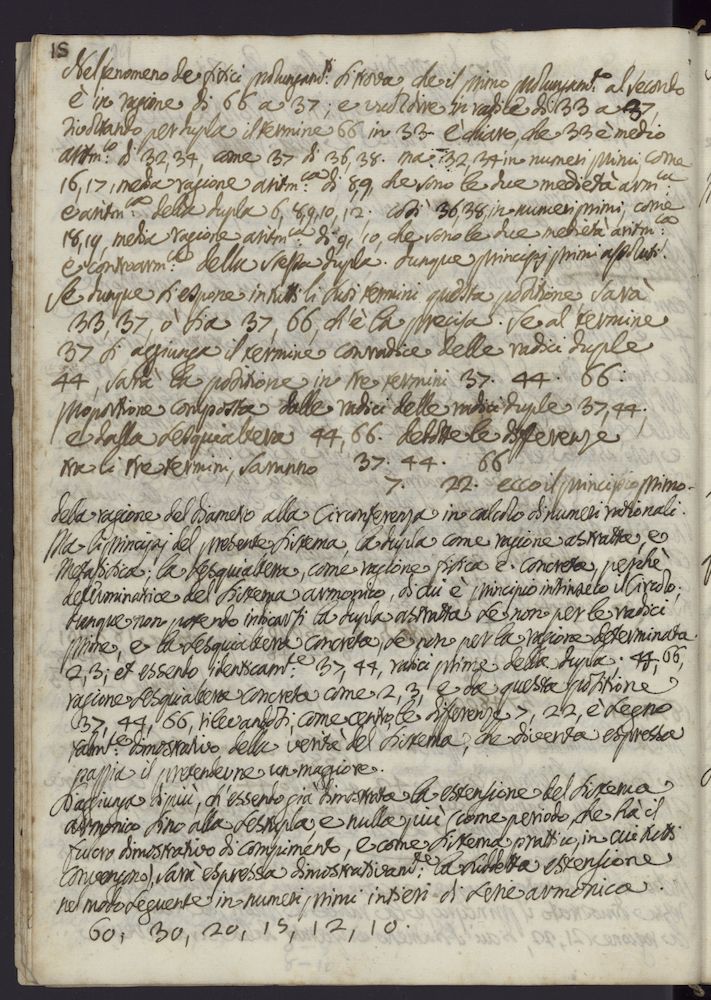 15
Nel fenomeno de fisici prolungam.ti si trova che il primo prolungam.to al secondo
è in ragione di 66 a 37; e di 33 a 37,
rivoltando per dupla il termine 66 in 33. È chiaro, che 33 è medio
aritm.co di 32, 34, come 37 di 36, 38. ma 32, 34 in numeri primi, come
16, 17, media ragione aritm.ca di 8, 9, che sono le due medietà arm.ca
e aritm.ca della dupla 6, 8, 9, 10, 12. così 36, 38, in numeri primi, come
18, 19, media ragione aritm.ca di 9, 10, che sono le due medietà aritm.ca
e controarm.ca della stessa dupla. dunque principj primi assoluti.
Se dunque si espone in tutti li suoi termini questa posizione sarà
33, 37, ò sia 37, 66, ch'è la precisa. Se al termine
37 si aggiunga il termine con radice delle radici duple
44, sarà la posizione in tre termini 37. 44. 66.
proporzione composta dalle radici delle radici duple 37, 44,
e dalla sesquialtera 44, 66. dedotte le differenze
tra li tre termini, saranno 37. 44. 66
7. 22. ecco il principio primo
della ragione del diametro alla Circonferenza in calcolo di numeri razionali.
Ma li principj del presente sistema, la dupla come ragione astratta, e
Metafisica; la sesquialtera, come ragione fisica e concreta, perchè
determinatrice del sistema armonico, di cui è principio intrinseco il Circolo;
dunque non potendo indicarsi la dupla astratta se non per le radici
prime, e la sesquialtera concreta se non per la ragione determinata
2, 3; et essendo identicam.te 37, 44, radici prime della dupla; 44, 66,
ragione sesquialtera concreta come 2, 3, e da questa posizione
37, 44, 66, rilevandosi, come centro, le differenze 7, 22, è segno
talm.te dimostrativo della verità del sistema, che diventa espressa
pazzia il pretenderne un magiore.
S'aggiunga di più, ch'essendo già dimostrata la estensione del sistema
armonico sino alla sestupla, e nulla più (come periodo, che hà il
fulcro dimostrativo di compimento, e come sistema prattico, in cui tutti
convengono), sarà espressa dimostrativam.te la suddetta estensione
nel modo seguente in numeri primi intieri di serie armonica.
60, 30, 20, 15, 12, 10.